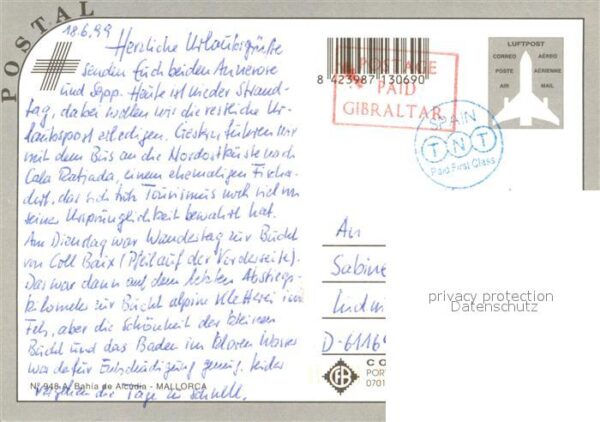 POSTAL
18.6.99
Herzliche Urlaubsgrüße
senden Euch beiden Annerose
und Sepp. Heute ist wieder Strand-
tag, dabei wollen wir die restliche Ur-
laubspost erledigen. Gestern fuhren wir
mit dem Bus an die Nordostküste nach
Cala Ratjada, einem ehemaligen Fischer-
dorf, das sich trotz Tourismus noch viel von
seiner Ursprünglichkeit bewahrt hat.
Am Dienstag war Wandertag zur Bucht
von Coll Baix (Pfeil auf der Vorderseite).
Das war dann auf dem letzten Abstiegs-
kilometer zur Bucht alpine Kletterei im
Fels, aber die Schönheit der kleinen
Bucht und das Baden im klaren Wasser
war dafür Entschädigung genug. Leider
vergehen die Tage zu schnell.
Nº 948-A. Bahía de Alcúdia - MALLORCA
8 423987 130690
POSTAGE
PAID
GIBRALTAR
LUFTPOST
CORREO AÉREO
POSTE AERIENNE
AIR MAIL
SPAIN
TNT
Paid First Class
An
Sabine
Ludwi
D-61169
CO
POR
0701
privacy protection
Datenschutz